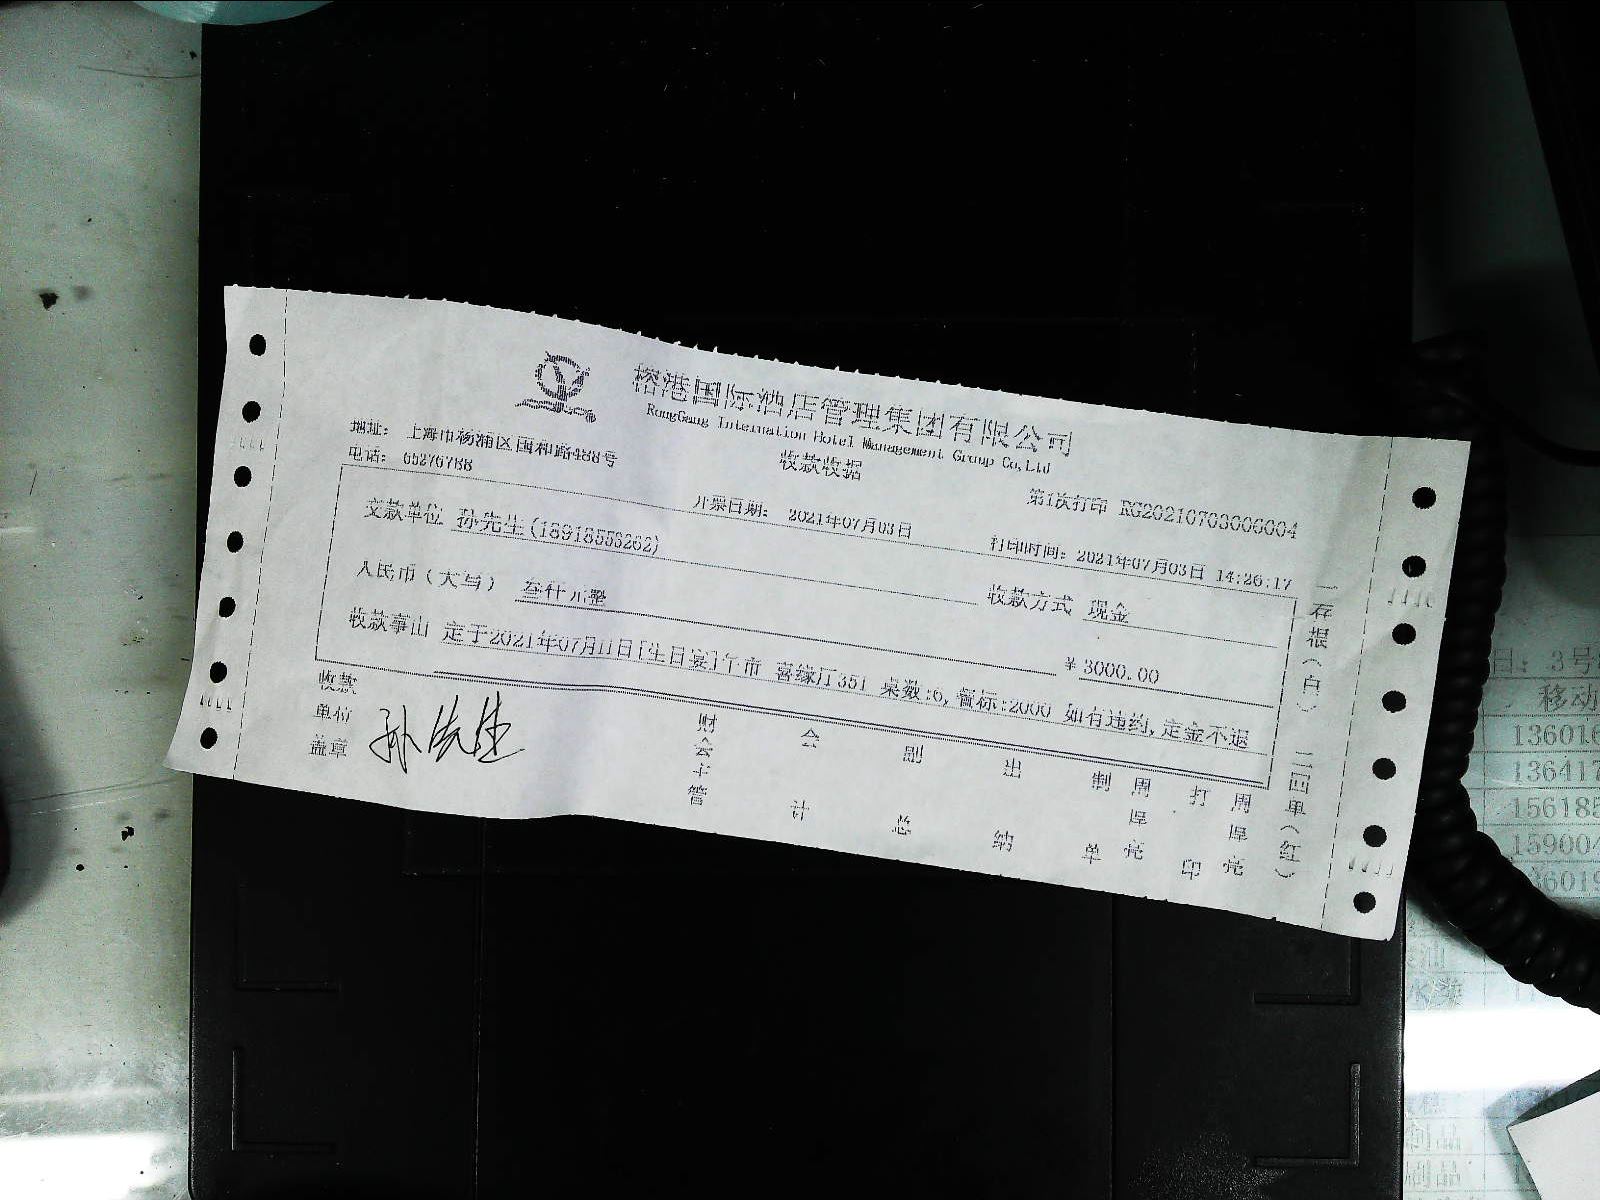 榕港国际酒店管理集团有限公司
RongGang Internation Hotel Management Group Co,Ltd
收款收据
地址： 上海市杨浦区国和路488号
电话： 65276788
第1次打印 RG20210703000004
开票日期： 2021年07月03日
打印时间：2021年07月03日 14:26:17
交款单位 孙先生(18918556262)
收款方式 现金
人民币（大写） 叁仟元整
￥3000.00
收款事由 定于2021年07月11日[生日宴]午市 喜缘厅351 桌数:6,餐标:2000 如有违约,定金不退
收款
单位
盖章
孙先生
财会主管
会计
副总
出纳
制单
周厚亮
打印
周厚亮
一存根（白） 二四单（红）
日：3号
移动
13601
13641
15618
15900